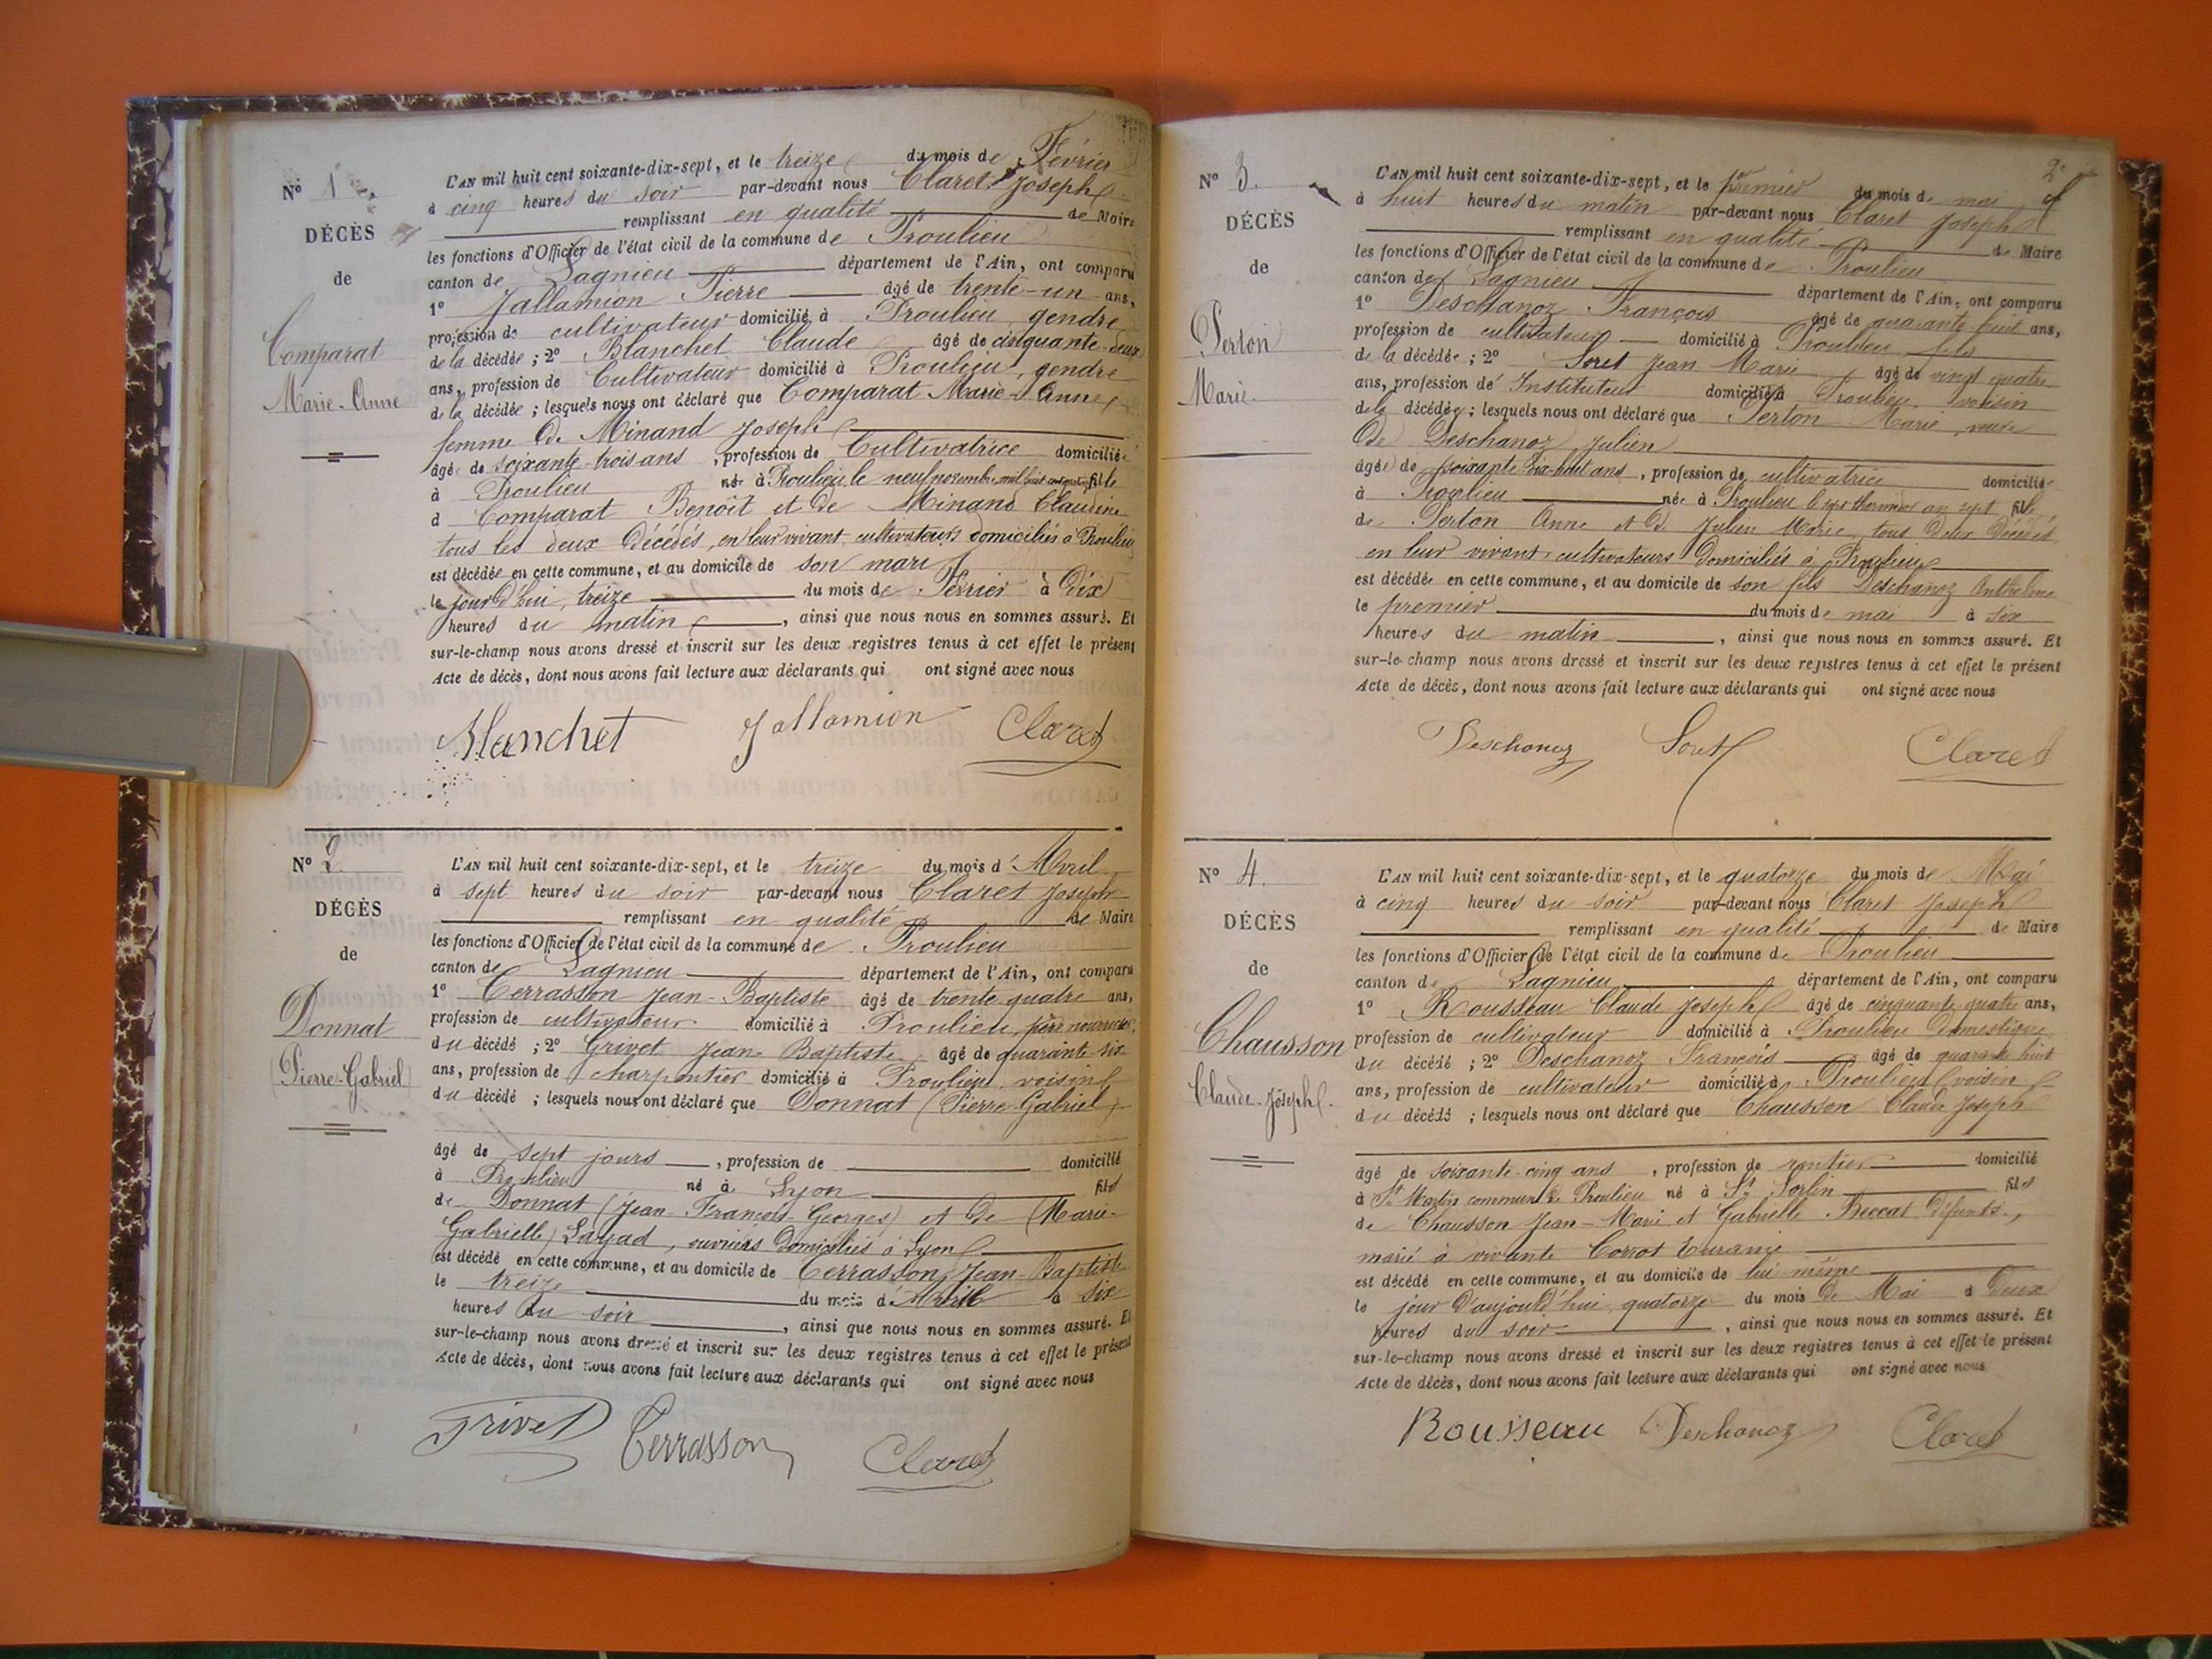 N° 1
DÉCÈS
de
Comparat
Marie-Anne
L'AN mil huit cent soixante-dix-sept, et le treize du mois de Février
à cinq heures du soir par-devant nous Claret Joseph
remplissant en qualité de Maire
les fonctions d'Officier de l'état civil de la commune de Proulieu
canton de Lagnieu département de l'Ain, ont comparu
1° Jallamion Pierre âgé de trente-un ans,
profession de cultivateur domicilié à Proulieu, gendre
de la décédée ; 2° Blanchet Claude âgé de cinquante-deux
ans, profession de Cultivateur domicilié à Proulieu, gendre
de la décédée ; lesquels nous ont déclaré que Comparat Marie-Anne
femme de Minand Joseph
âgée de soixante-trois ans, profession de Cultivatrice domiciliée
à Proulieu née à Proulieu, le neuf novembre mil huit cent fille
d Comparat Benoît et de Minand Claudine
tous les deux décédés, en leur vivant cultivateurs domiciliés à Proulieu
est décédée en cette commune, et au domicile de son mari
le jourd'hui, treize du mois de Février à dix
heures du matin, ainsi que nous nous en sommes assuré. Et
sur-le-champ nous avons dressé et inscrit sur les deux registres tenus à cet effet le présent
Acte de décès, dont nous avons fait lecture aux déclarants qui ont signé avec nous
Blanchet Jallamion Claret
N° 2
DÉCÈS
de
Donnat
(Pierre-Gabriel)
L'AN mil huit cent soixante-dix-sept, et le treize du mois d'Avril
à sept heures du soir par-devant nous Claret Joseph
remplissant en qualité de Maire
les fonctions d'Officier de l'état civil de la commune de Proulieu
canton de Lagnieu département de l'Ain, ont comparu
1° Terrasson Jean-Baptiste âgé de trente-quatre ans,
profession de cultivateur domicilié à Proulieu, père nourricier
du décédé ; 2° Grivet Jean Baptiste, âgé de quarante six
ans, profession de charpentier domicilié à Proulieu, voisin
du décédé ; lesquels nous ont déclaré que Donnat (Pierre-Gabriel)
âgé de sept jours, profession de domicilié
à Proulieu né à Lyon fils
de Donnat (Jean-François-Georges) et de (Marie-
Gabrielle) Sayad, ouvriers domiciliés à Lyon
est décédé en cette commune, et au domicile de Terrasson Jean-Baptiste
le treize du mois d'Avril à six
heures du soir, ainsi que nous nous en sommes assuré. Et
sur-le-champ nous avons dressé et inscrit sur les deux registres tenus à cet effet le présent
Acte de décès, dont nous avons fait lecture aux déclarants qui ont signé avec nous
Grivet Terrasson Claret
2e
N° 3.
DÉCÈS
de
Perton
Marie
L'AN mil huit cent soixante-dix-sept, et le premier du mois de mai
à huit heures du matin par-devant nous Claret Joseph
remplissant en qualité de Maire
les fonctions d'Officier de l'état civil de la commune de Proulieu
canton de Lagnieu département de l'Ain, ont comparu
1° Deschanoz François âgé de quarante huit ans,
profession de cultivateur domicilié à Proulieu fils
de la décédée ; 2° Soret Jean Marie âgé de vingt quatre
ans, profession de Instituteur domicilié à Proulieu, voisin
de la décédée ; lesquels nous ont déclaré que Perton Marie, veuve
de Deschanoz Julien
âgée de soixante dix-huit ans, profession de cultivatrice domiciliée
à Proulieu née à Proulieu le sept thermidor an sept fille
de Perton Anne et de Julien Marie, tous deux décédés,
en leur vivant cultivateurs domiciliés à Proulieu
est décédée en cette commune, et au domicile de son fils Deschanoz Anthelme
le premier du mois de mai à six
heures du matin, ainsi que nous nous en sommes assuré. Et
sur-le-champ nous avons dressé et inscrit sur les deux registres tenus à cet effet le présent
Acte de décès, dont nous avons fait lecture aux déclarants qui ont signé avec nous
Deschanoz Soret Claret
N° 4.
DÉCÈS
de
Chausson
Claude-Joseph.
L'AN mil huit cent soixante-dix-sept, et le quatorze du mois de Mai
à cinq heures du soir par-devant nous Claret Joseph
remplissant en qualité de Maire
les fonctions d'Officier de l'état civil de la commune de Proulieu
canton de Lagnieu département de l'Ain, ont comparu
1° Rousseau Claude Joseph âgé de cinquante quatre ans,
profession de cultivateur domicilié à Proulieu domestique
du décédé ; 2° Deschanoz François âgé de quarante huit
ans, profession de cultivateur domicilié à Proulieu voisin
du décédé ; lesquels nous ont déclaré que Chausson Claude Joseph
âgé de soixante-cinq ans, profession de rentier domicilié
à St Martin commune de Proulieu né à St Sorlin fils
de Chausson Jean-Marie et Gabrielle Beccat défunts,
marié à vivante Corrot Euranie
est décédé en cette commune, et au domicile de lui même
le jour d'aujourd'hui quatorze du mois de Mai à deux
heures du soir, ainsi que nous nous en sommes assuré. Et
sur-le-champ nous avons dressé et inscrit sur les deux registres tenus à cet effet le présent
Acte de décès, dont nous avons fait lecture aux déclarants qui ont signé avec nous
Rousseau Deschanoz Claret